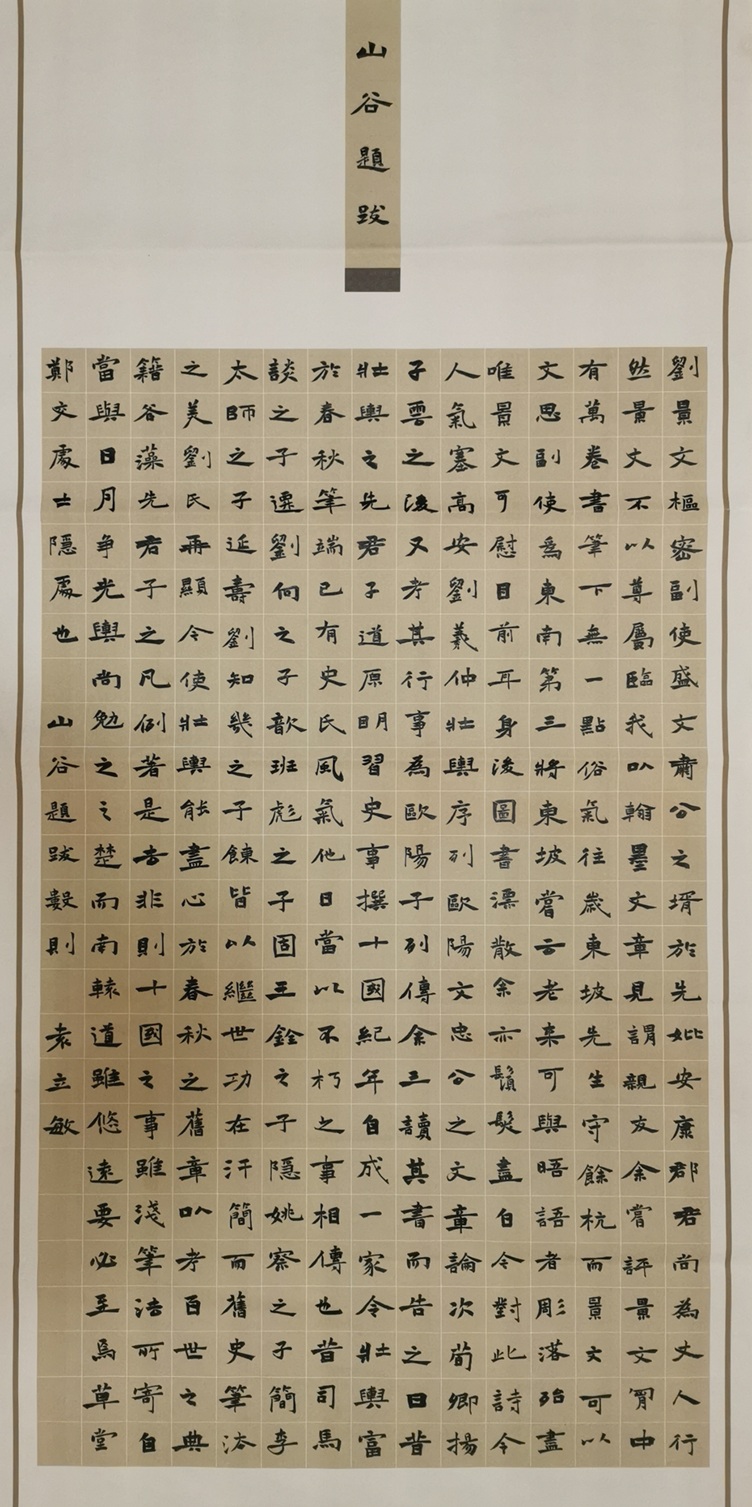 山谷題跋
劉景文樞密副使盛文肅公之壻於先妣安康郡君尚為丈人行
然景文不以尊屬臨我以翰墨文章見謂親友余嘗評景文胷中
有萬卷書筆下無一點俗氣往歲東坡先生守餘杭而景文可以
文思副使為東南第三將東坡嘗云老来可與晤語者彫落殆盡
唯景文可慰目前耳身後圖書漂散余亦鬚髮盡白今對此詩令
人氣塞高安劉羲仲壯輿序列歐陽文忠公之文章論次荀卿揚
子雲之後又考其行事為歐陽子列傳余三讀其書而告之曰昔
壯輿之先君子道原明習史事撰十國紀年自成一家今壯輿富
於春秋筆端已有史氏風氣他日當以不朽之事相傳也昔司馬
談之子遷劉向之子歆班彪之子固王銓之子隱姚察之子簡李
太師之子延壽劉知幾之子餗皆以繼世功在汗簡而舊史筆法
之美劉氏再顯今使壯輿能盡心於春秋之舊章以考百世之典
籍谷藻先君子之凡例著是去非則十國之事雖淺筆法所寄自
當與日月争光輿尚勉之之楚而南轅道雖悠遠要必至焉草堂
鄭交處士隱處也 山谷題跋數則 袁立敏